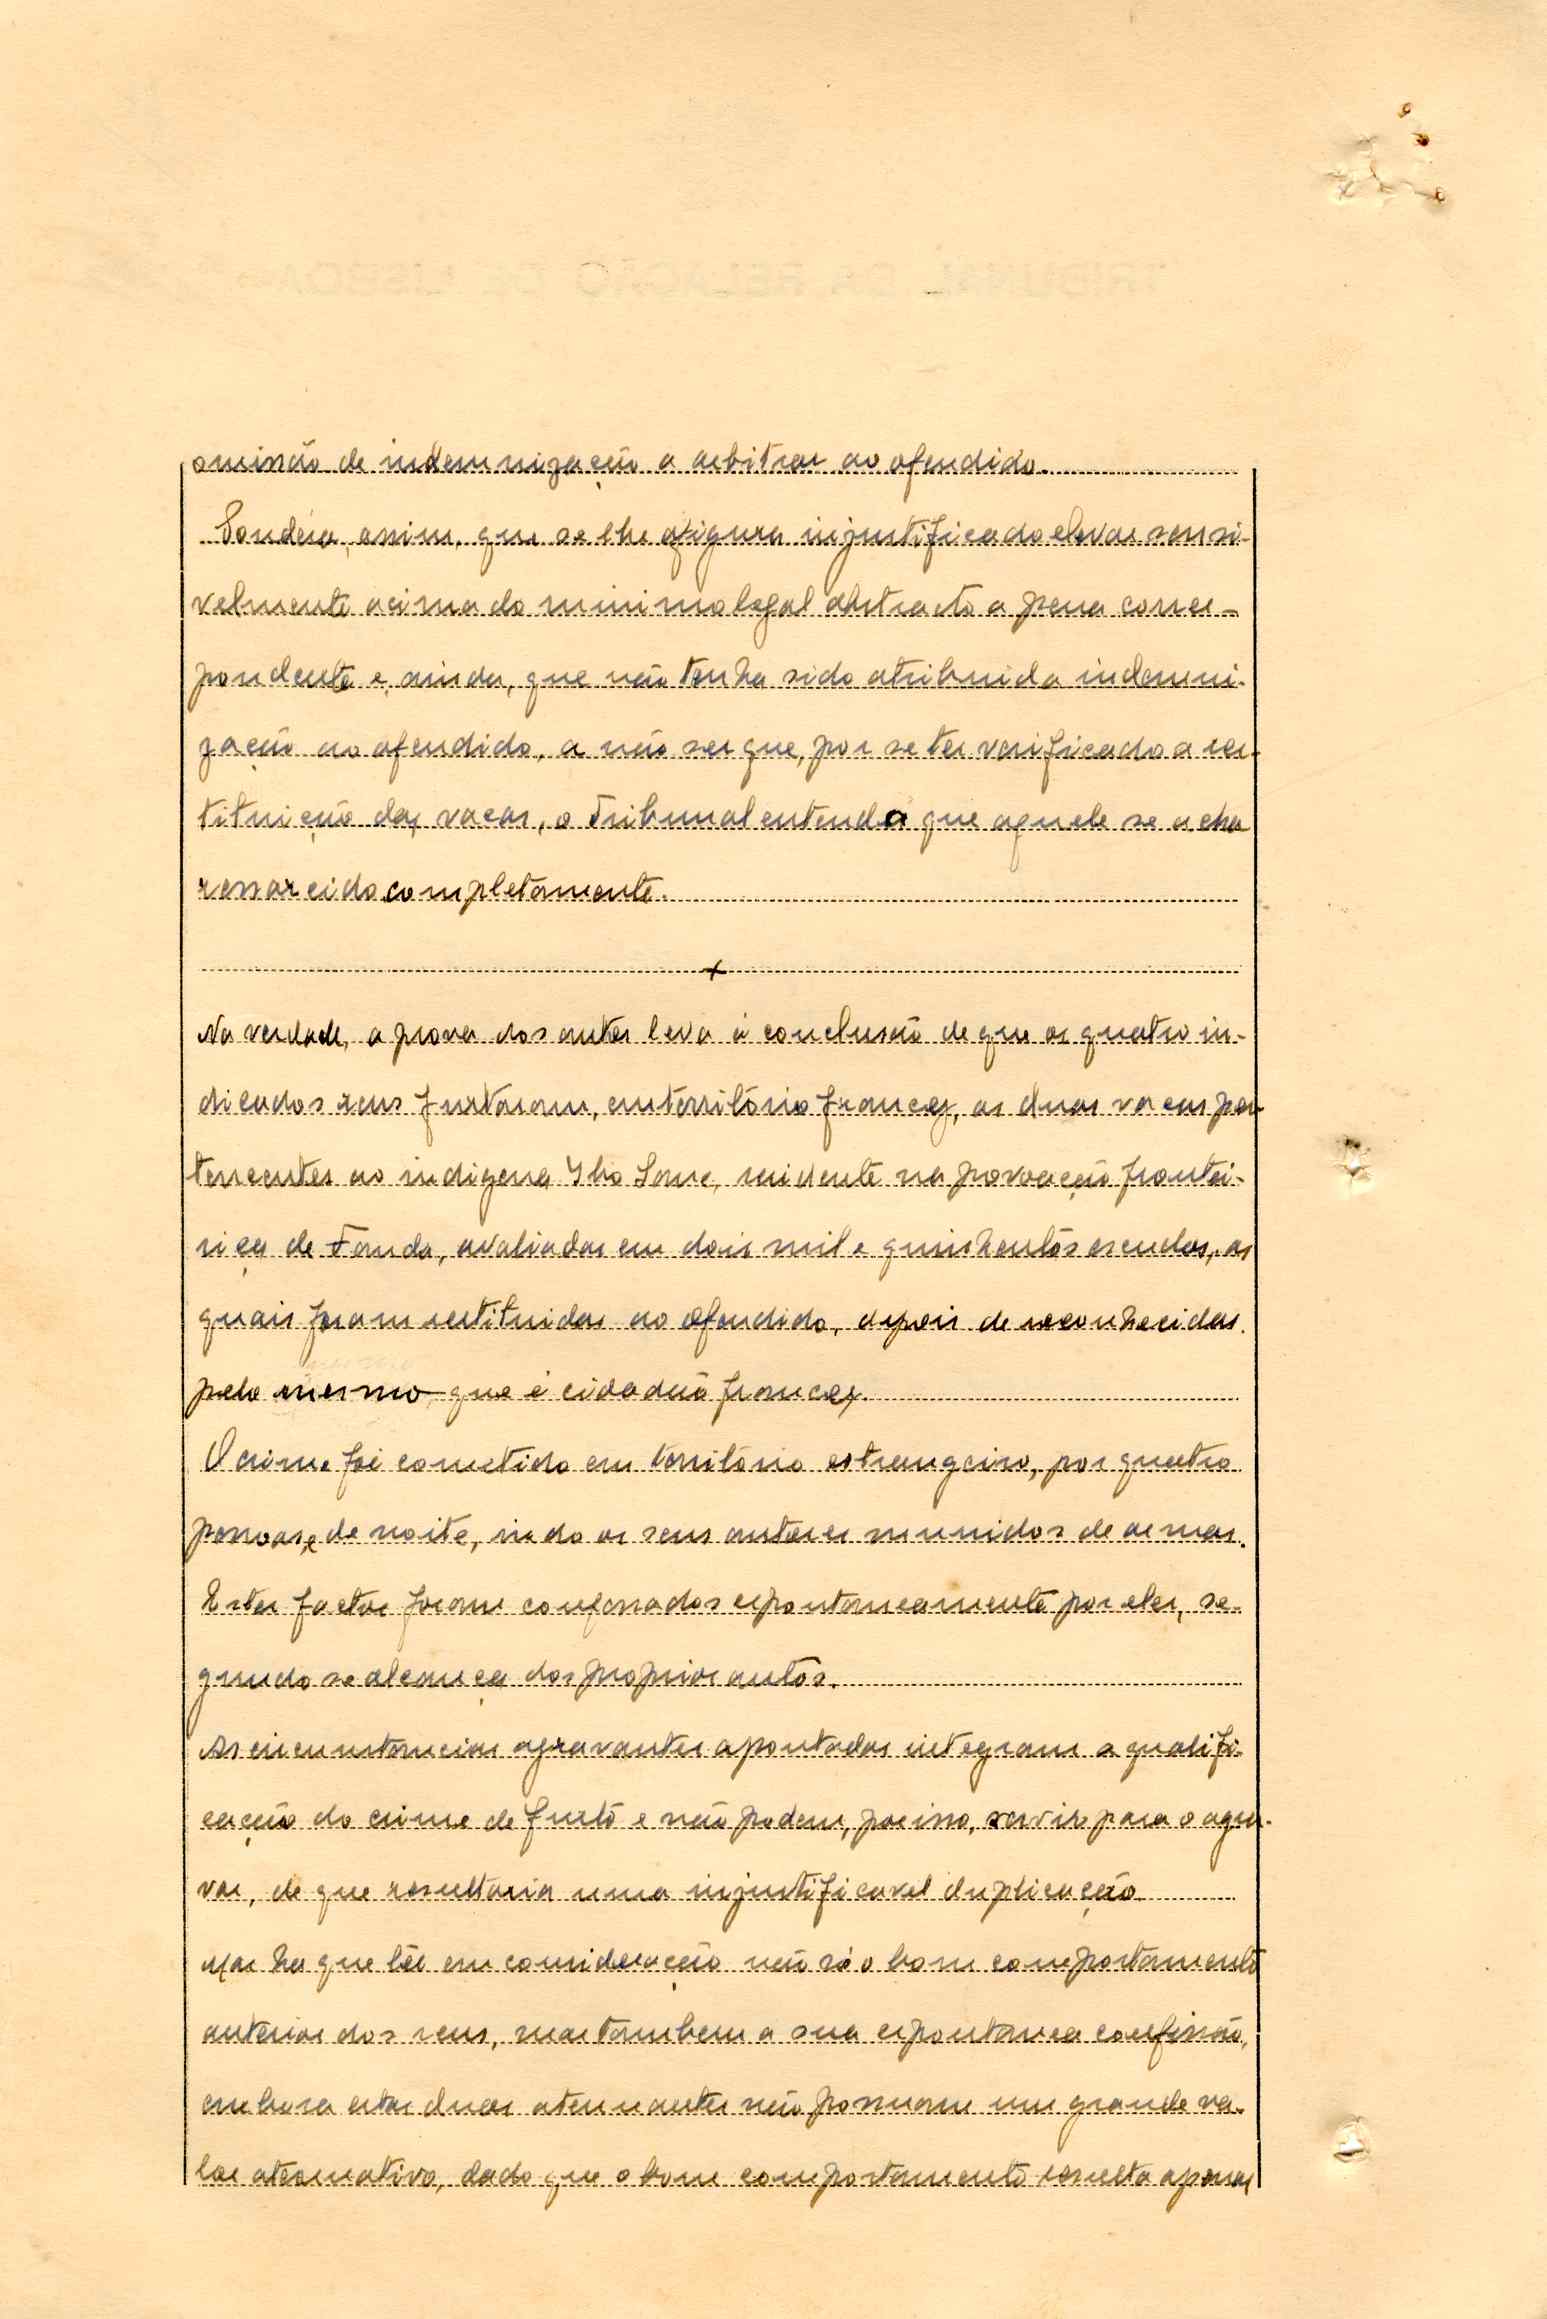 omissão de indemnização a arbitrar ao ofendido.
Pondera, assim, que se lhe afigura injustificado elevar sensi-
velmente acima do minimo legal abstracto a pena corres-
pondente e, ainda, que não tenha sido atribuida indemni-
zação ao ofendido, a não ser que, por se ter verificado a res-
tituição das vacas, o Tribunal entenda que aquele se acha
ressarcido completamente.
x
Na verdade, a prova dos autos leva á conclusão de que os quatro in-
dicados reus furtaram, em território francez, as duas vacas per-
tencentes ao indigena Iho Sane, residente na povoação frontei-
riça de Fanda, avaliadas em dois mil e quinhentos escudos, as
quais foram restituidas ao ofendido, depois de reconhecidas
pelo mesmo que é cidadão francez.
O crime foi cometido em território estrangeiro, por quatro
pessoas, e de noite, indo os seus autores munidos de armas.
Estes factos foram confessados espontaneamente por eles, se-
gundo se alcança dos proprios autos.
As circunstancias agravantes apontadas integram a qualifi-
cação do crime de furto e não podem, por isso, servir para o agra-
var, de que resultaria uma injustificavel duplicação
Mas ha que ter em consideração não só o bom comportamento
anterior dos reus, mas tambem a sua espontanea confissão,
embora estas duas atenuantes não possuam um grande va-
lor atenuativo, dado que o bom comportamento resulta apenas